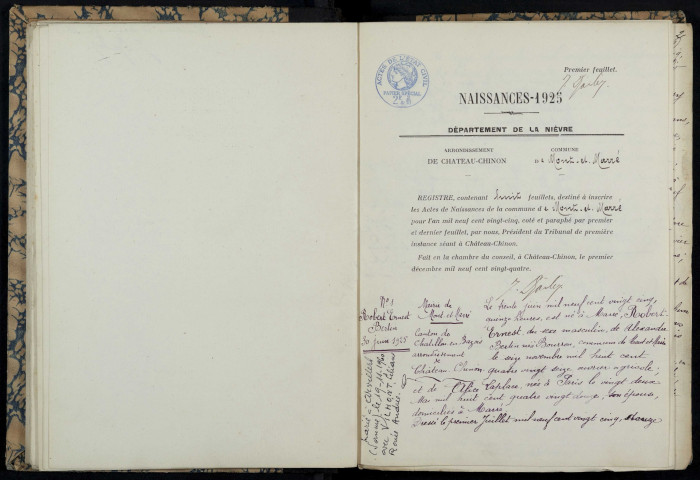 Premier feuillet.
ACTES DE L'ETAT CIVIL
PAPIER SPECIAL
NAISSANCES-1925
DÉPARTEMENT DE LA NIÈVRE
ARRONDISSEMENT
DE CHATEAU-CHINON
COMMUNE
de Mont-et-Marré
REGISTRE, contenant huit feuillets, destiné à inscrire
les Actes de Naissances de la commune de Mont-et-Marré
pour l'an mil neuf cent vingt-cinq, coté et paraphé par premier
et dernier feuillet, par nous, Président du Tribunal de première
instance séant à Château-Chinon.
Fait en la chambre du conseil, à Château-Chinon, le premier
décembre mil neuf cent vingt-quatre.
N° 1
Robert Ernest
Berlin
30 juin 1925
marié à
(Somme) le 19-11-1960
avec
Mairie de
Mont-et-Marré
Canton de
Chatillon-en-Bazois
arrondissement
Château-Chinon
Le trente juin mil neuf cent vingt cinq,
heures, est né à Marré, Robert
Ernest du sexe masculin, de Alexandre
Berlin né à commune de Mont-et-Marré
le seize novembre mil huit cent
quatre vingt seize ouvrier agricole
et de Alice Laplace, née à Paris le vingt deux
Mai mil huit cent quatre vingt douze, son épouse,
domiciliés à Marré
Dressé le premier Juillet mil neuf cent vingt cinq,